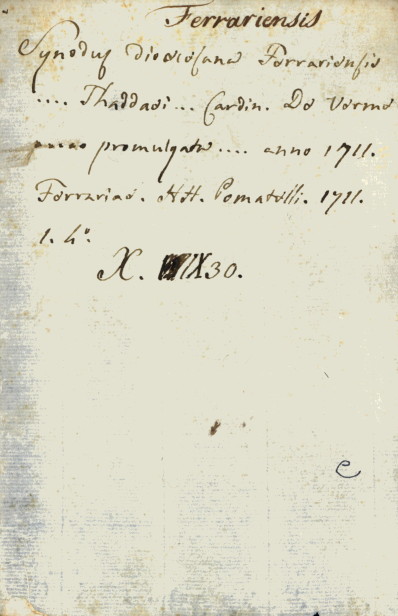 Ferrariensis
Synodus Dioecesana Ferrariensis
.... Thaddaei ... Cardin. De Verme
promulgata .... anno 1711.
Ferrariae. HH. Pomatelli. 1711.
1. 4º.
X. IX30.
e